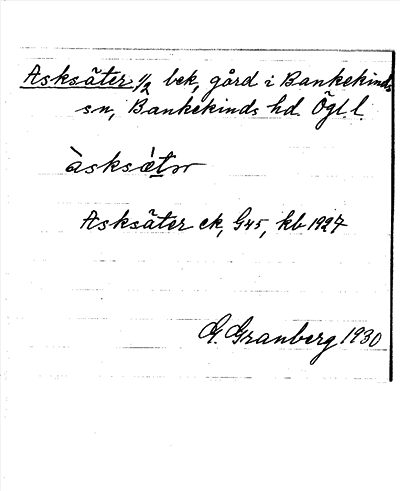 Asksäter 1/2 bek, gård i Bankekinds
sn, Bankekinds hd. Ögl.l.
àsksæ̀tər
Asksäter ek, G45, kb 1927
G. Granberg 1930